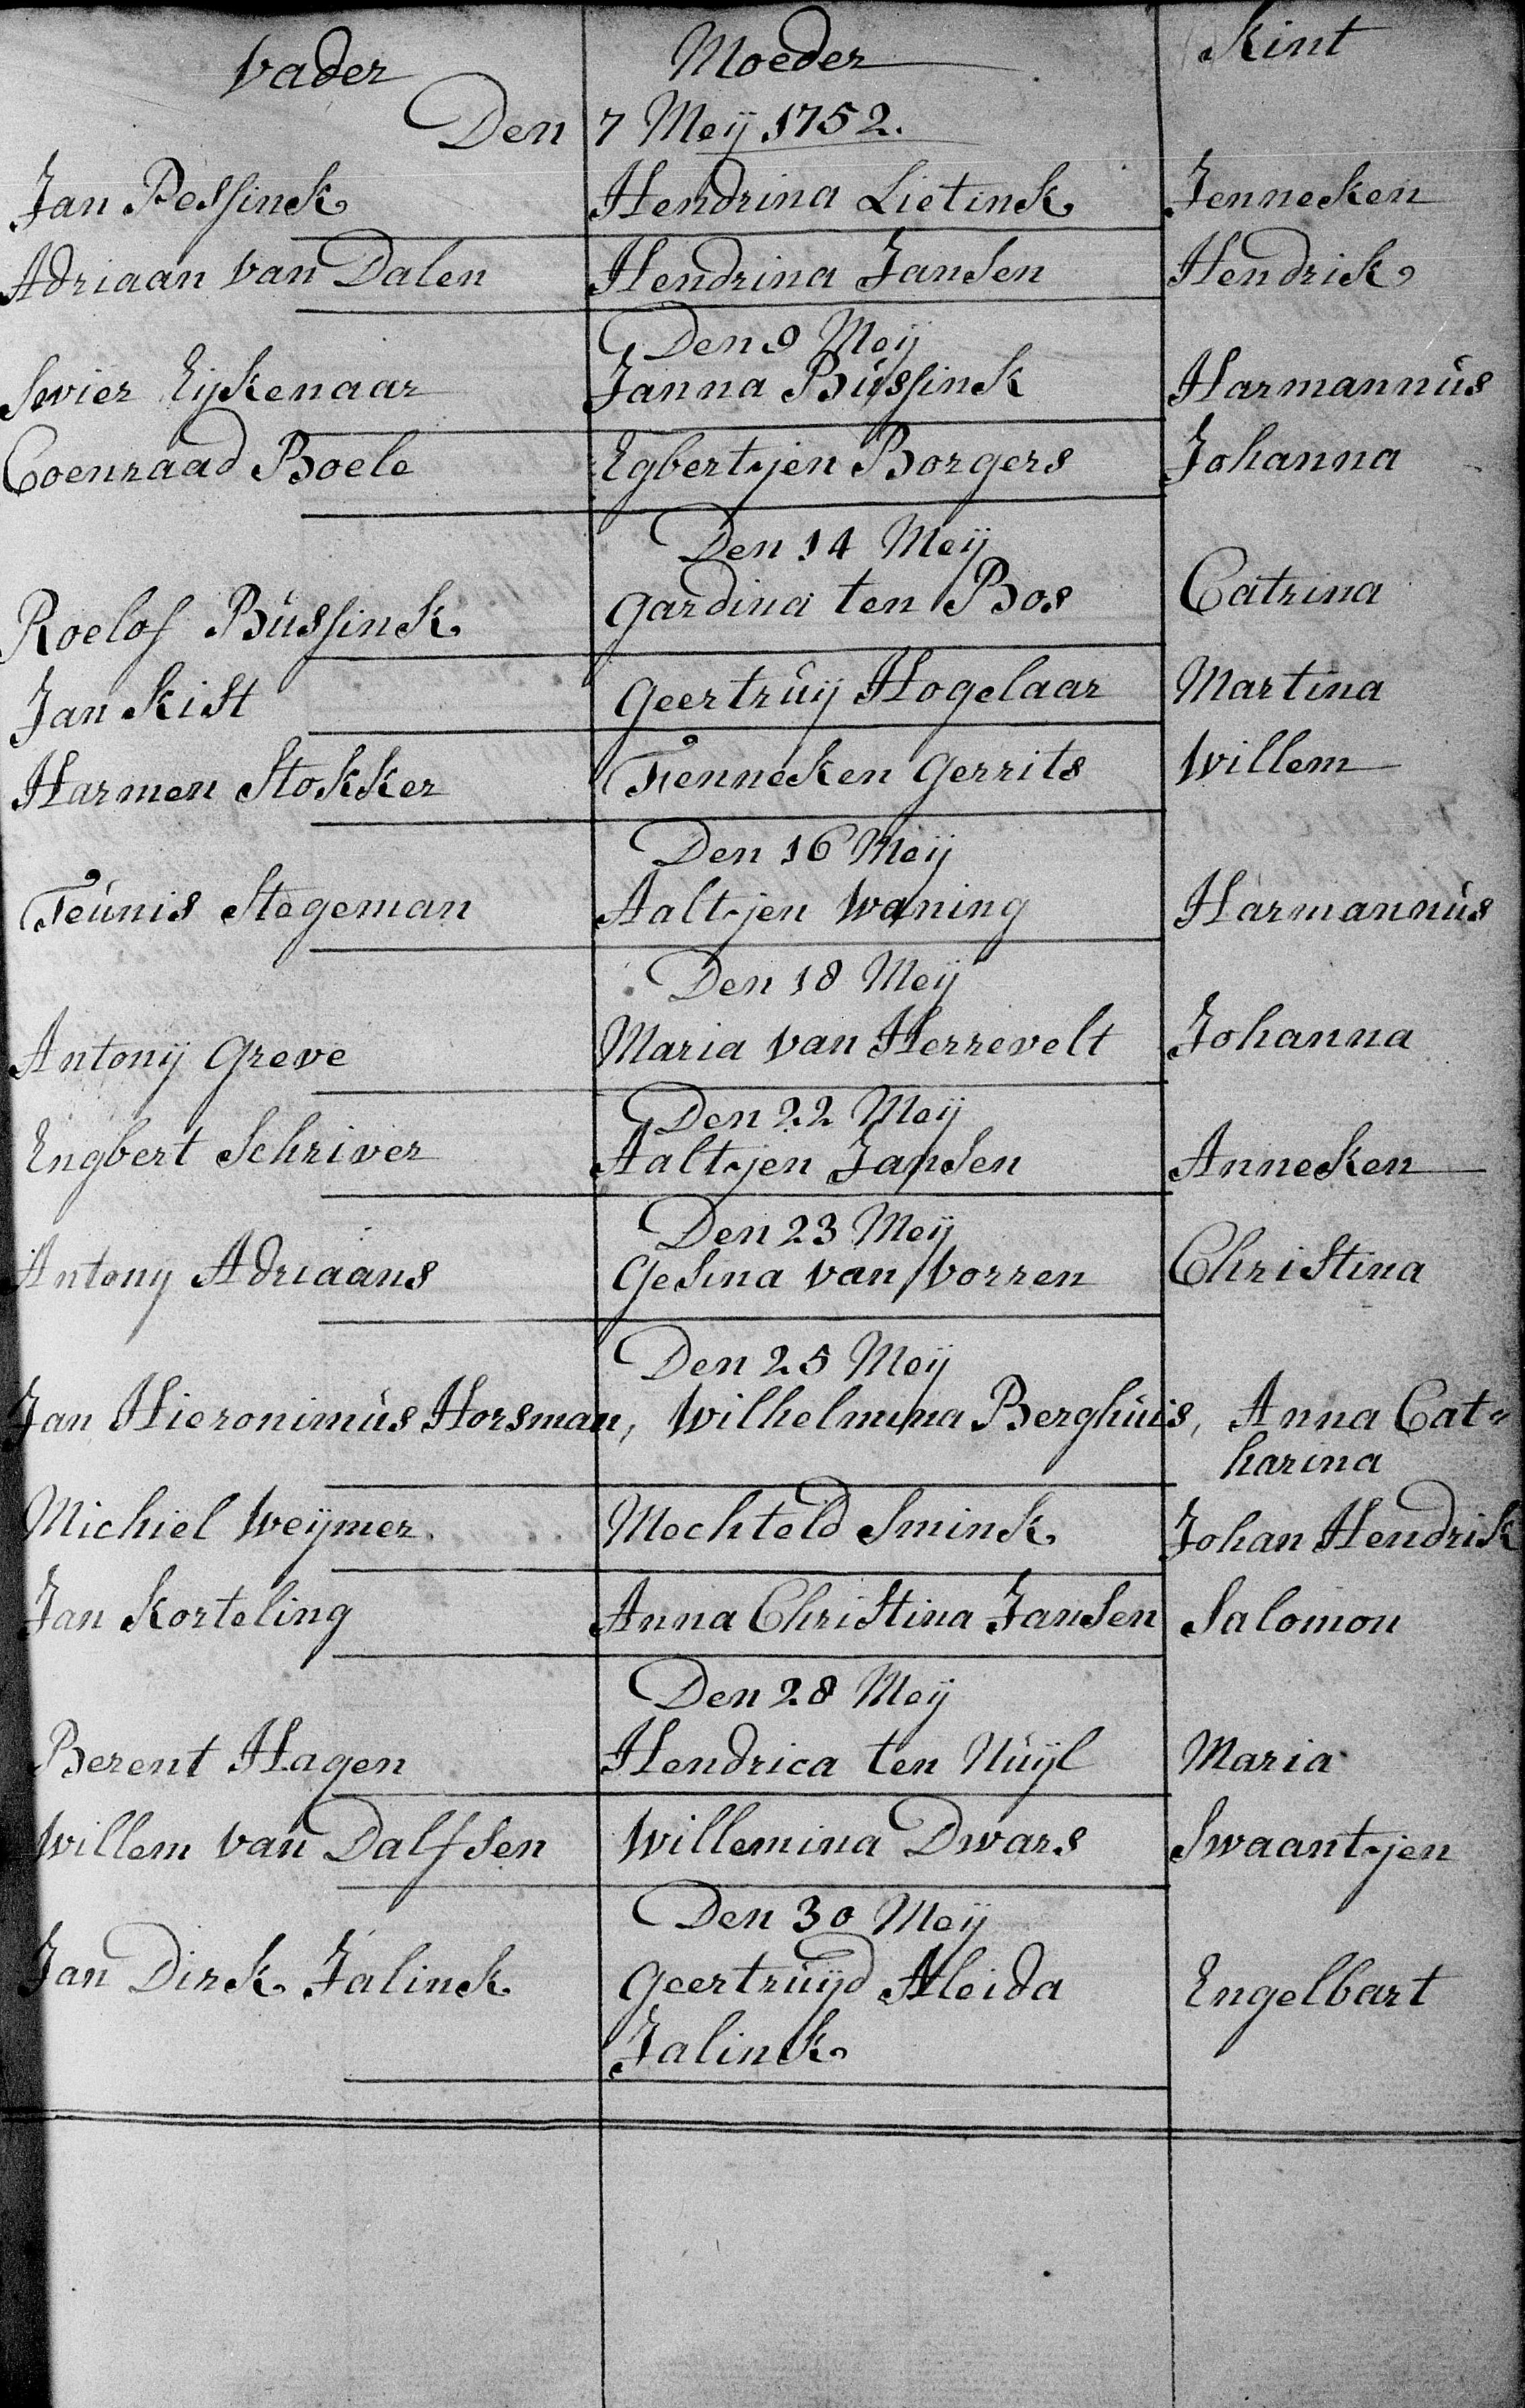 Vader Moeder Kint
Den 7 Meij 1752.
Jan Pessink Hendrina Lietink Jenneken
Adriaan van Dalen Hendrina Jansen Hendrik
Den 9 Meij
Swier Eijkenaar Janna Bússink Harmannús
Coenraad Boele Egbertjen Borgers Johanna
Den 14 Meij
Roelof Bússink Gardina ten Bos Catrina
Jan Kist Geertrúij Hogelaar Martina
Harmen Stokker Fenneken Gerrits Willem
Den 16 Meij
Teúnis Stegeman Aaltjen Waning Harmannús
Den 18 Meij
Antonij Greve Maria van Herrevelt Johanna
Den 22 Meij
Engbert Schriver Aaltjen Jansen Anneken
Den 23 Meij
Antony Adriaans Gesina van Vorren Christina
Den 25 Meij
Jan Hieronimús Horsman, Wilhelmina Berghúis, Anna Cat=
harina
Michiel Weijmer Mechteld Smink Johan Hendrik
Jan Korteling Anna Christina Jansen Salomon
Den 28 Meij
Berent Hagen Hendrica ten Núijl Maria
Willem van Dalfsen Willemina Dwars Swaantjen
Den 30 Meij
Jan Dirk Jalink Geertrúijd Aleida Engelbart
Jalink